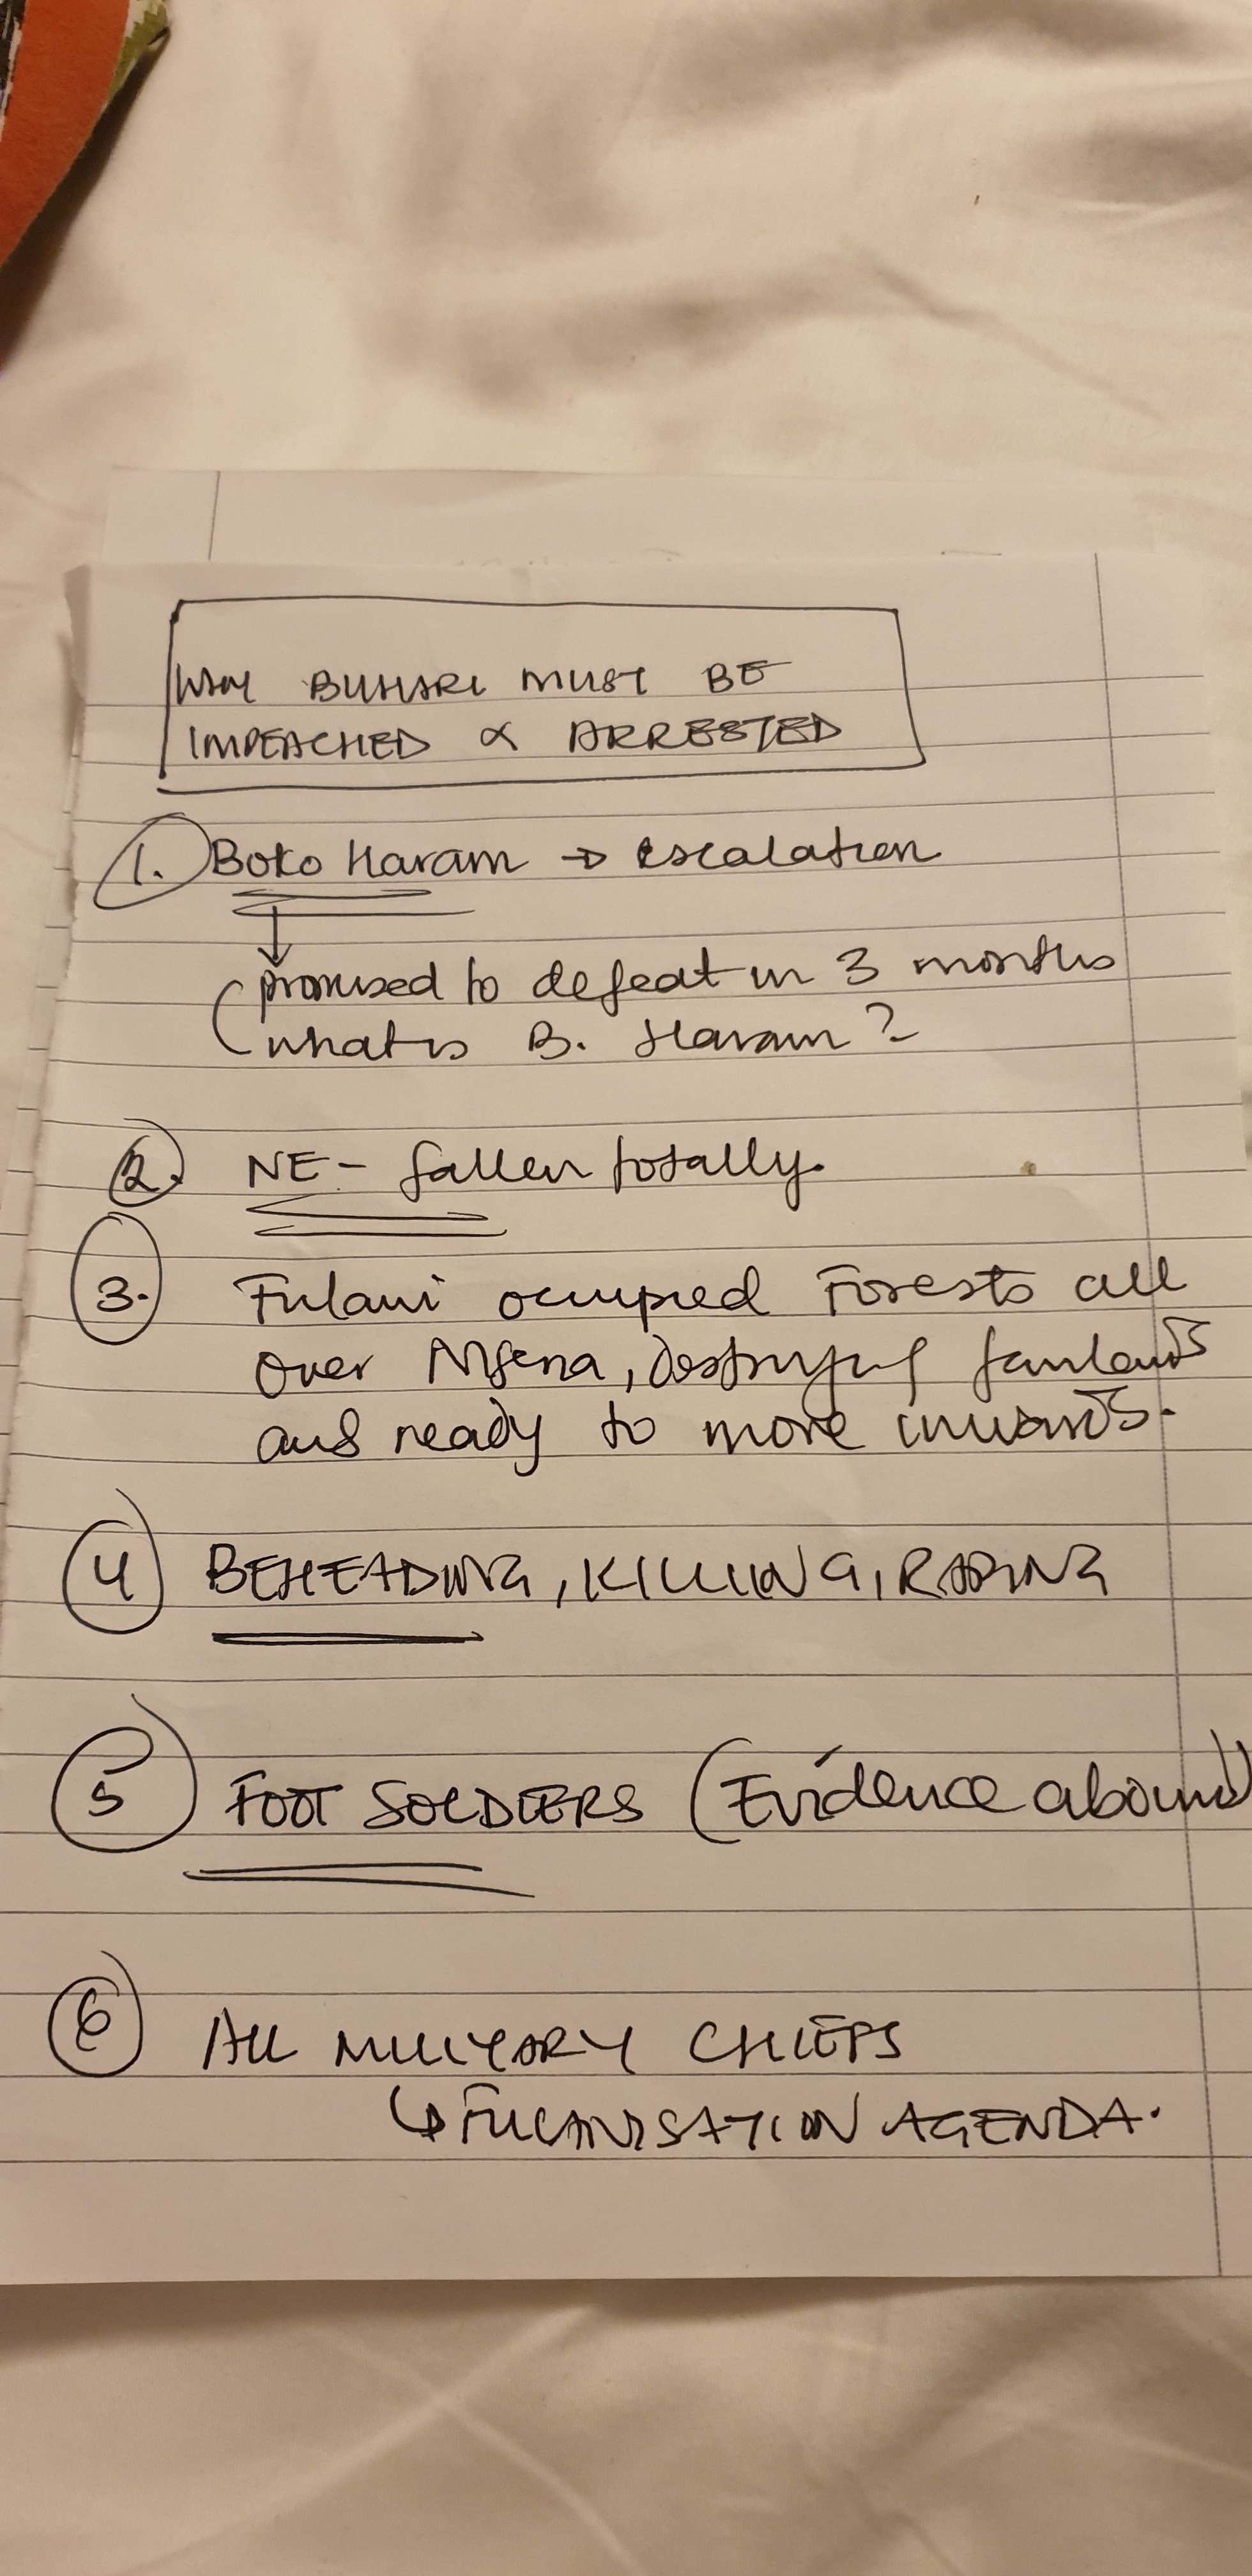 WHY BUHARI MUST BE
IMPEACHED & ARRESTED
1. Boko Haram → escalation
↓
(promised to defeat in 3 months
(what is B. Haram?
2. NE - fallen totally.
3. Fulani occupied Forests all
over Nigeria, destroying farmlands
and ready to move inwards.
4 BEHEADING, KILLING, RAPING
5 FOOT SOLDIERS (Evidence abound)
6 All MILITARY CHIEFS
↳ FULANISATION AGENDA.